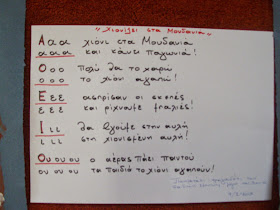 "Χιονίζει στα Μουδανιά"
Α α α χιόνι στα Μουδανιά
α α α και κάνει παγωνιά!
Ο ο ο Πολύ θα το χαρώ
ο ο ο το χιόνι αγαπώ!
Ε ε ε ασπρίσαν οι σκεπές
ε ε ε και ρίχνουμε μπαλιές!
Ι ι ι θα βγούμε στην αυλή
ι ι ι στη χιονισμένη αυλή!
Ου ου ου ο αέρας πάει παντού
ου ου ου τα παιδιά το χιόνι αγαπούν!